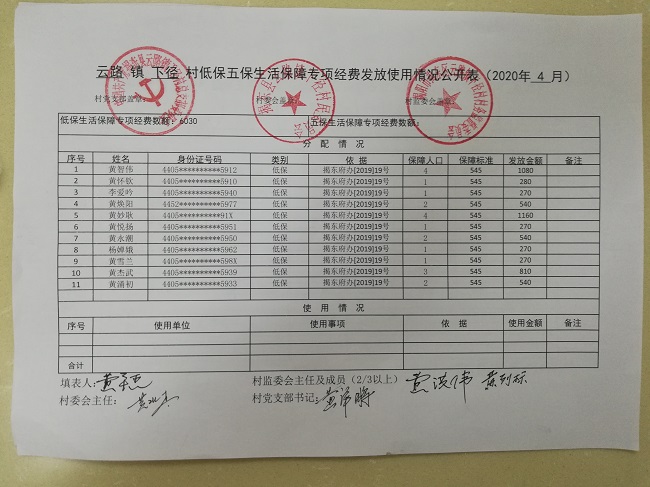 云路 镇 下径 村低保五保生活保障专项经费发放使用情况公开表（2020年 4 月）
村党支部盖章： 村委会盖章： 村监委会盖章：
低保生活保障专项经费数额：6030 五保生活保障专项经费数额：
分 配 情 况
序号 姓名 身份证号码 类别 依 据 保障人口 保障标准 发放金额 备注
1 黄智伟 4405**********5912 低保 揭东府办[2019]19号 4 545 1080
2 黄怀钦 4405**********5910 低保 揭东府办[2019]19号 1 545 280
3 李爱吟 4405**********5940 低保 揭东府办[2019]19号 1 545 270
4 黄焕阳 4452**********5977 低保 揭东府办[2019]19号 2 545 540
5 黄妙耿 4405**********91X 低保 揭东府办[2019]19号 4 545 1160
6 黄悦扬 4405**********5951 低保 揭东府办[2019]19号 1 545 270
7 黄永潮 4405**********5950 低保 揭东府办[2019]19号 2 545 540
8 杨婵娥 4405**********5962 低保 揭东府办[2019]19号 1 545 270
9 黄雪兰 4405**********598X 低保 揭东府办[2019]19号 1 545 270
10 黄杰武 4405**********5939 低保 揭东府办[2019]19号 3 545 810
11 黄浦初 4405**********5933 低保 揭东府办[2019]19号 2 545 540
使 用 情 况
序号 使用单位 使用事项 依 据 使用金额 备注
合计
填表人： 村监委会主任及成员（2/3以上）
村委会主任： 村党支部书记：